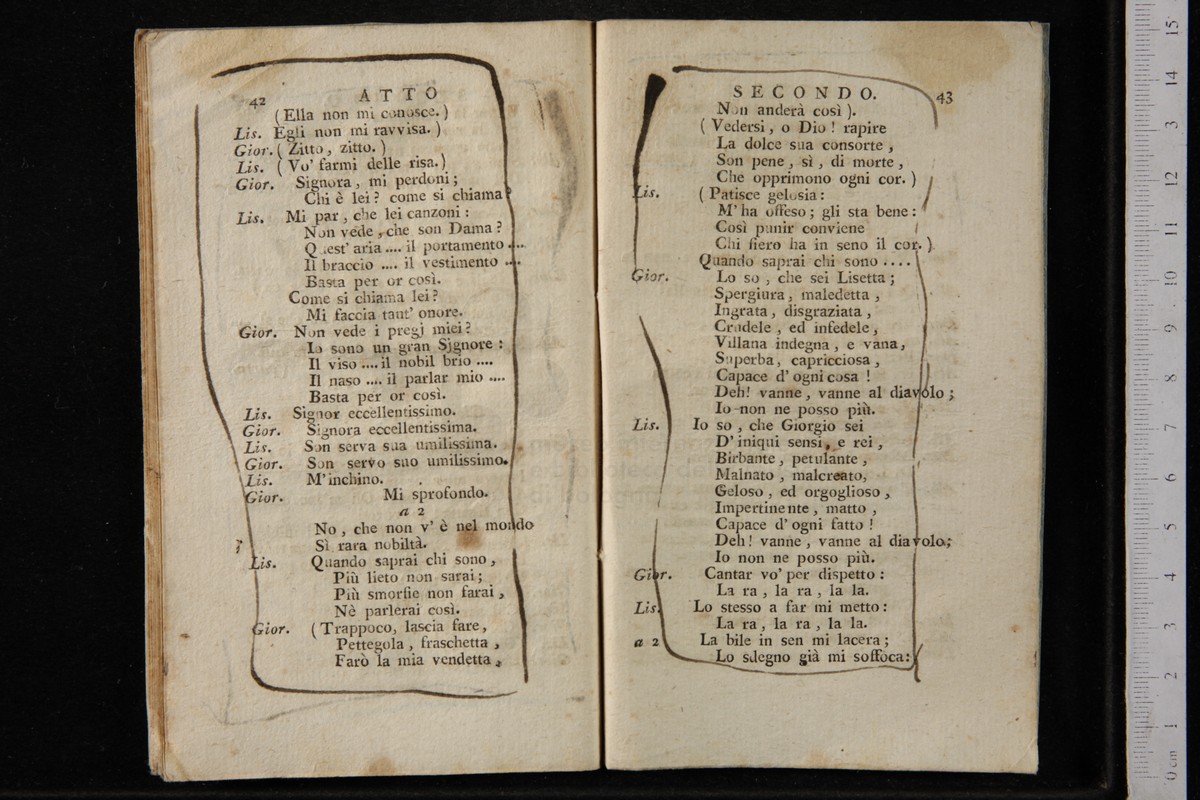 42 ATTO
(Ella non mi conosce.)
Lis. Egli non mi ravvisa. )
Gior. ( Zitto, zitto. )
Lis. ( Vo' farmi delle risa.)
Gior. Signora, mi perdoni;
Chi è lei? come si chiama?
Lis. Mi par, che lei canzoni:
Non vede, che son Dama?
Quest' aria .... il portamento ....
Il braccio .... il vestimento ....
Basta per or così.
Come si chiama lei?
Mi faccia tant' onore.
Gior. Non vede i pregj miei?
Io sono un gran Signore:
Il viso .... il nobil brio ....
Il naso .... il parlar mio ....
Basta per or così.
Lis. Signor eccellentissimo.
Gior. Signora eccellentissima.
Lis. Son serva sua umilissima.
Gior. Son servo suo umilissimo.
Lis. M'inchino.
Gior. Mi sprofondo.
a 2
No, che non v' è nel mondo
Sì rara nobiltà.
Lis. Quando saprai chi sono,
Più lieto non sarai;
Più smorfie non farai,
Nè parlerai così.
Gior. (Trappoco, lascia fare,
Pettegola, fraschetta,
Farò la mia vendetta,
SECONDO. 43
Non anderà così ).
( Vedersi, o Dio! rapire
La dolce sua consorte,
Son pene, sì, di morte,
Che opprimono ogni cor. )
Lis. ( Patisce gelosia:
M' ha offeso; gli sta bene:
Così punir conviene
Chi fiero ha in seno il cor. ).
Quando saprai chi sono ....
Gior. Lo so, che sei Lisetta;
Spergiura, maledetta,
Ingrata, disgraziata,
Crudele, ed infedele,
Villana indegna, e vana,
Superba, capricciosa,
Capace d' ogni cosa!
Deh! vanne, vanne al diavolo;
Io non ne posso più.
Lis. Io so, che Giorgio sei
D' iniqui sensi, e rei,
Birbante, petulante,
Malnato, malcreato,
Geloso, ed orgoglioso,
Impertinente, matto,
Capace d' ogni fatto!
Deh! vanne, vanne al diavolo;
Io non ne posso più.
Gior. Cantar vo' per dispetto:
La ra, la ra, la la.
Lis. Lo stesso a far mi metto:
La ra, la ra, la la.
a 2 La bile in sen mi lacera;
Lo sdegno già mi soffoca: